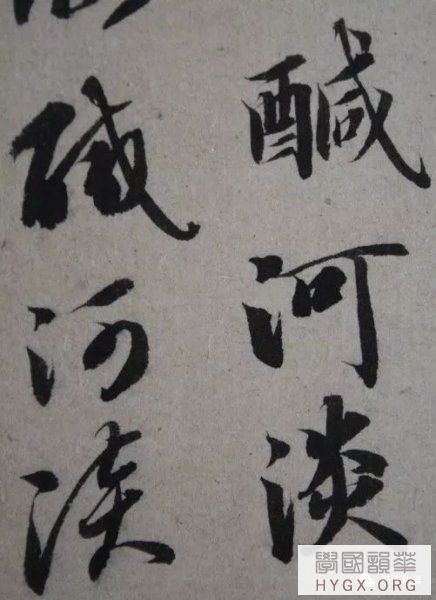 醎河淡
醎河淡
華韻國學
HYGX.ORG